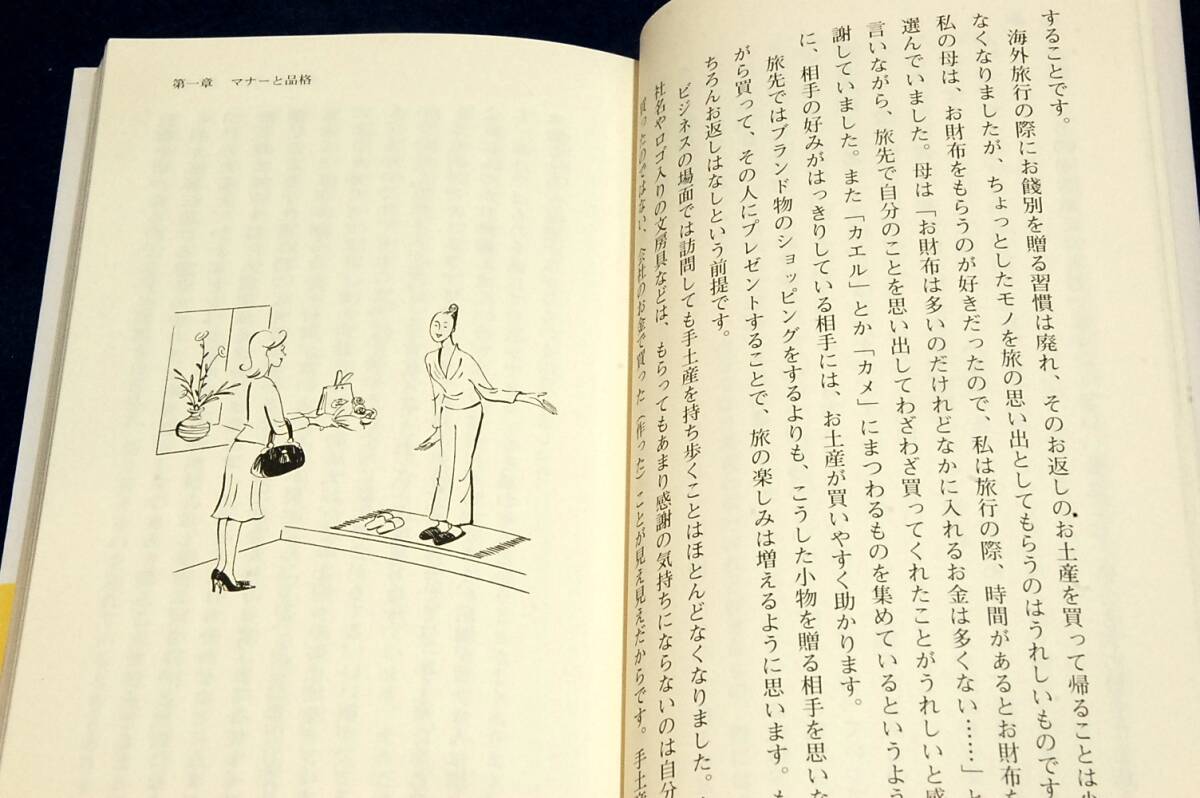 することです。
海外旅行の際にお餞別を贈る習慣は廃れ、そのお返しのお土産を買って帰ることは少
なくなりましたが、ちょっとしたモノを旅の思い出としてもらうのはうれしいものです
私の母は、お財布をもらうのが好きだったので、私は旅行の際、時間があるとお財布を
選んでいました。母は「お財布は多いのだけれどなかに入れるお金は多くない……」と
言いながら、旅先で自分のことを思い出してわざわざ買ってくれたことがうれしいと感
謝していました。また「カエル」とか「カメ」にまつわるものを集めているというよう
に、相手の好みがはっきりしている相手には、お土産が買いやすく助かります。
旅先ではブランド物のショッピングをするよりも、こうした小物を贈る相手を思いな
がら買って、その人にプレゼントすることで、旅の楽しみは増えるように思います。も
ちろんお返しはなしという前提です。
ビジネスの場面では訪問しても手土産を持ち歩くことはほとんどなくなりました。
社名やロゴ入りの文房具などは、もらってもあまり感謝の気持ちにならないのは自分
買ったのではない、会社のお金で買った（作った）ことが見え見えだからです。手土産
第一章 マナーと品格